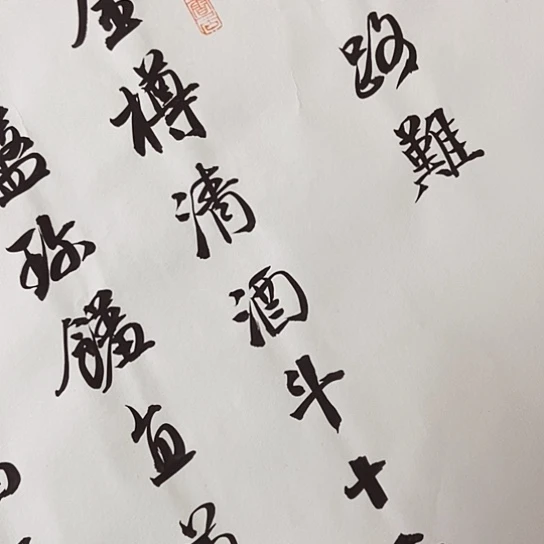 路難
金樽清酒斗十
盤珍饈直